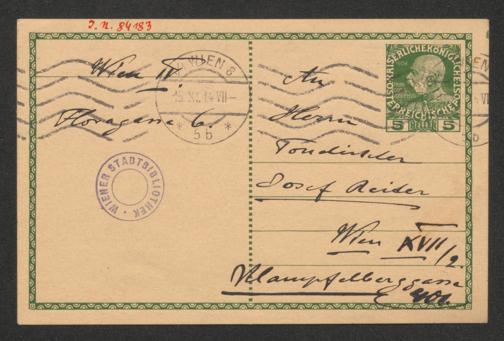 I. N. 84183
Wien IV.
Floragasse 6.
WIEN 8
5b
WIENER STADTBIBLIOTHEK
KAISERLICHE KÖNIGLICHE
ÖSTERREICHISCHE POST
5 HELLER 5
An
Herrn
Tondichter
Josef Reiter
Wien XVII/2.